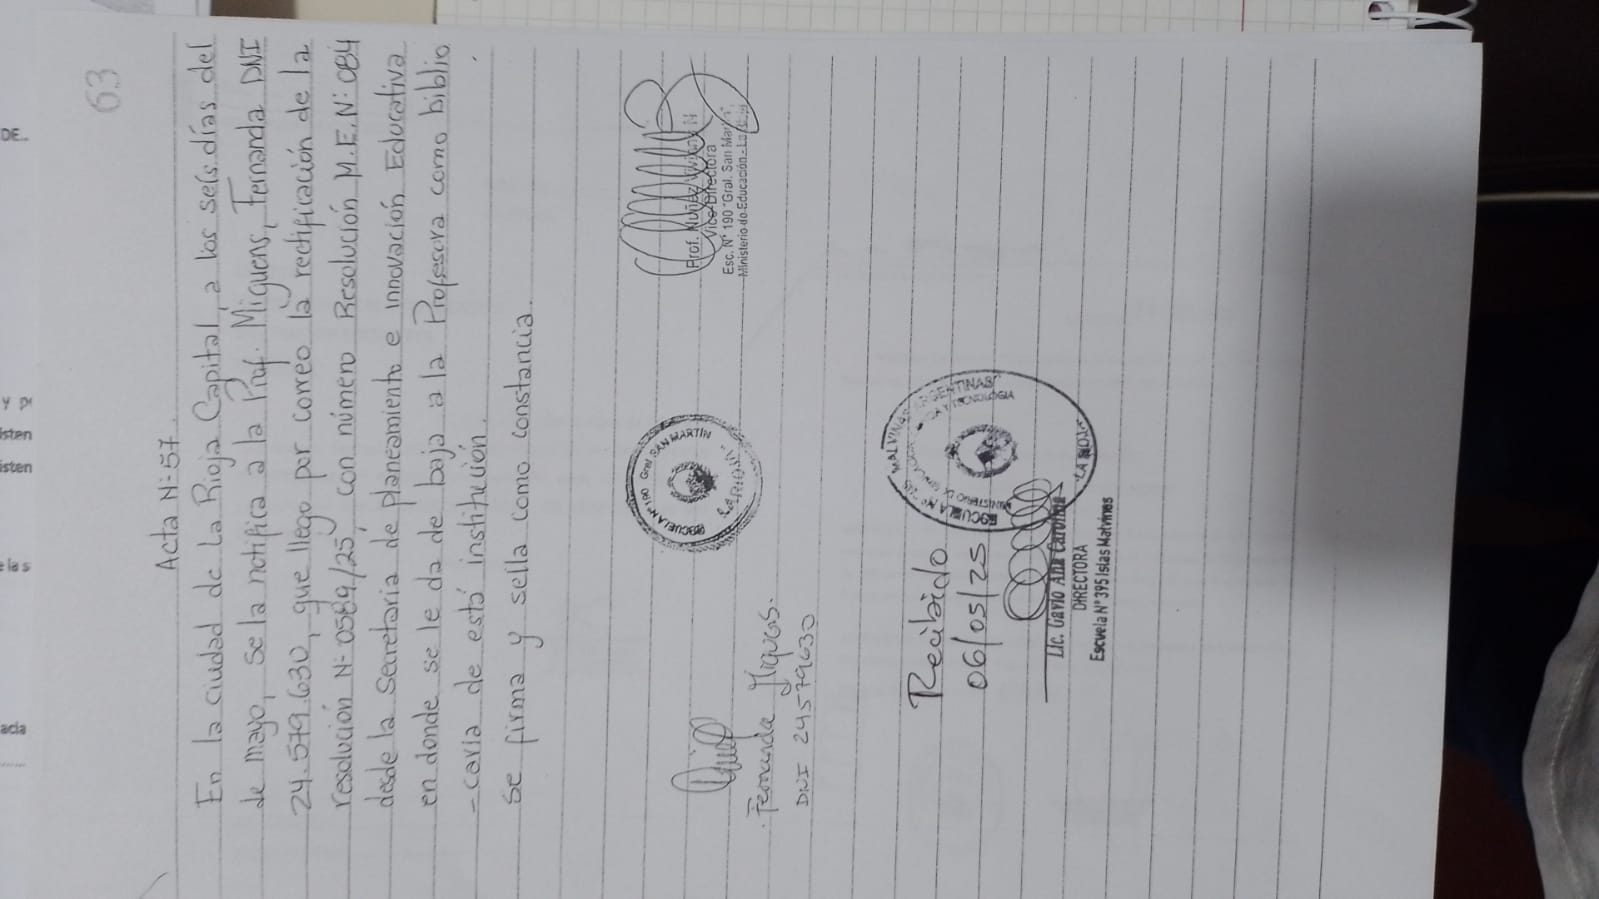 63
Acta N=57.
En la ciudad de La Rioja Capital, a los seis días del
de mayo, se la notifica a la Prof. Miguens, Fernanda DNI
24.579.630, que llego por correo la rectificación de la
resolución N=0589/25, con número Resolución M.E.N=:084
desde la Secretaria de planeamiento e innovación Educativa
en donde se le da de baja a la Profesora como biblio
-caria de está institución.
Se firma y sella como constancia.
Prof. Nuñez N
Vice Directora
Esc. N° 190 "Gral. San Martín"
Ministerio de Educación - La
ESCUELA N° 190 Gral SAN MARTIN
LA RIOJA
Fernanda Miguens.
DNI 24579630
Recibido
06/05/25
MALVINAS ARGENTINAS
ESCUELA N°
MINISTERIO DE
Y TECNOLOGIA
LA RIOJA
Lic. Gavio Ana Carolina
DIRECTORA
Escuela N° 395 Islas Malvinas
DE..
y p
isten
isten
e las
ada